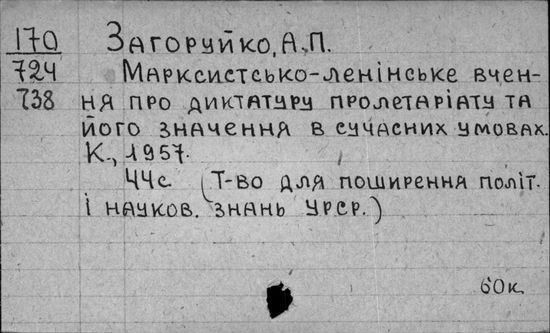 170 Загоруйко, А.П.
724 Марксистсько-ленінське вчен-
738 ня про диктатуру пролетаріату та
його значення в сучасних умовах.
К., 1957.
44с (Т-во для поширення політ.
і науков. знань УРСР.)
60к.